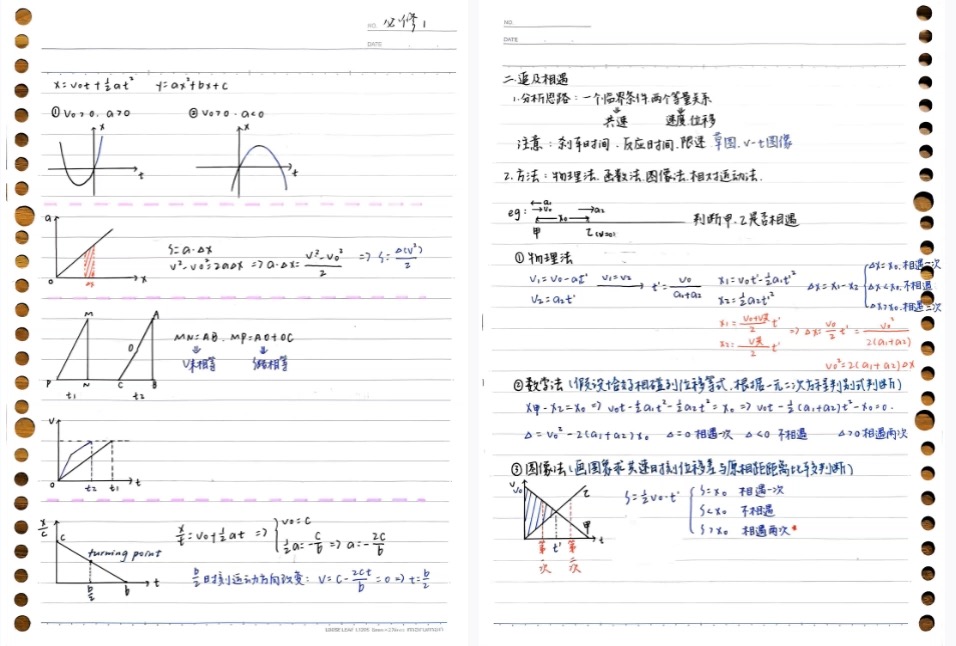 NO. 必修1
DATE
x=v₀t+½at² y=ax²+bx+c
①v₀>0.a>0 ②v₀>0.a<0
x t x t
a
S=a·Δx
v²-v₀²=2aΔx ⇒ a·Δx=(v²-v₀²)/2 ⇒ S=Δ(v²)/2
0 x
M A
O
MN=AB. MP=AO+OC
v末相等 路程相等
P N C B
t₁ t₂
v
0 t₂ t₁ t
x/t
C
x/t=v₀+½at ⇒ { v₀=c
½a=-c/b ⇒ a=-2c/b
turning point
b/2 b t
b/2时刻运动方向改变: v=c-2ct/b=0 ⇒ t=b/2
NO.
DATE
二.追及相遇
1.分析思路:一个临界条件.两个等量关系
共速 速度.位移
注意:刹车时间.反应时间.限速.草图.v-t图像
2.方法:物理法.函数法.图像法.相对运动法.
eg: a₁ v₀ x₀ a₂
甲 乙(v=0) 判断甲.乙是否相遇
①物理法
v₁=v₀-a₁t' v₁=v₂ t'=v₀/(a₁+a₂) x₁=v₀t'-½a₁t'²
v₂=a₂t' x₂=½a₂t'²
Δx=x₁-x₂ { Δx=x₀.相遇一次
Δx<x₀.不相遇
Δx>x₀.相遇二次
x₁=(v₀+v共)/2 t'
x₂=v共/2 t' ⇒ Δx=v₀/2 t'=v₀²/2(a₁+a₂)
v₀²=2(a₁+a₂)Δx
②数学法(假设恰好相碰列位移等式.根据一元二次方程判别式判断)
x甲-x乙=x₀ ⇒ v₀t-½a₁t²-½a₂t²=x₀ ⇒ v₀t-½(a₁+a₂)t²-x₀=0.
Δ=v₀²-2(a₁+a₂)x₀ Δ=0 相遇一次 Δ<0 不相遇 Δ>0 相遇两次
③图像法(画图象求共速时刻位移差与原相距距离比较判断)
v
v₀ 乙
S=½v₀·t' { S=x₀ 相遇一次
S<x₀ 不相遇
S>x₀ 相遇两次
甲
t' t
第一次 第二次